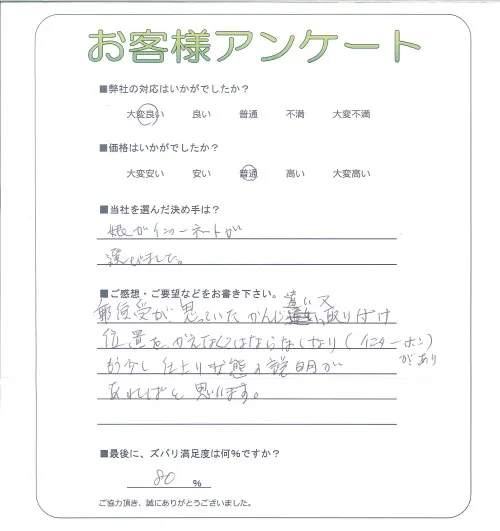 お客様アンケート
■弊社の対応はいかがでしたか？
大変良い 良い 普通 不満 大変不満
■価格はいかがでしたか？
大変安い 安い 普通 高い 大変高い
■当社を選んだ決め手は？
娘がインターネットが
選びました。
■ご感想・ご要望などをお書き下さい。
違い又
郵便受が、思っていたかんじ 取りばけ
位置をかえなくてはならなくなり（インターホン
があり
もう少し仕上り状態の説明が
あればと思います。
■最後に、ズバリ満足度は何％ですか？
80 %
ご協力頂き、誠にありがとうございました。